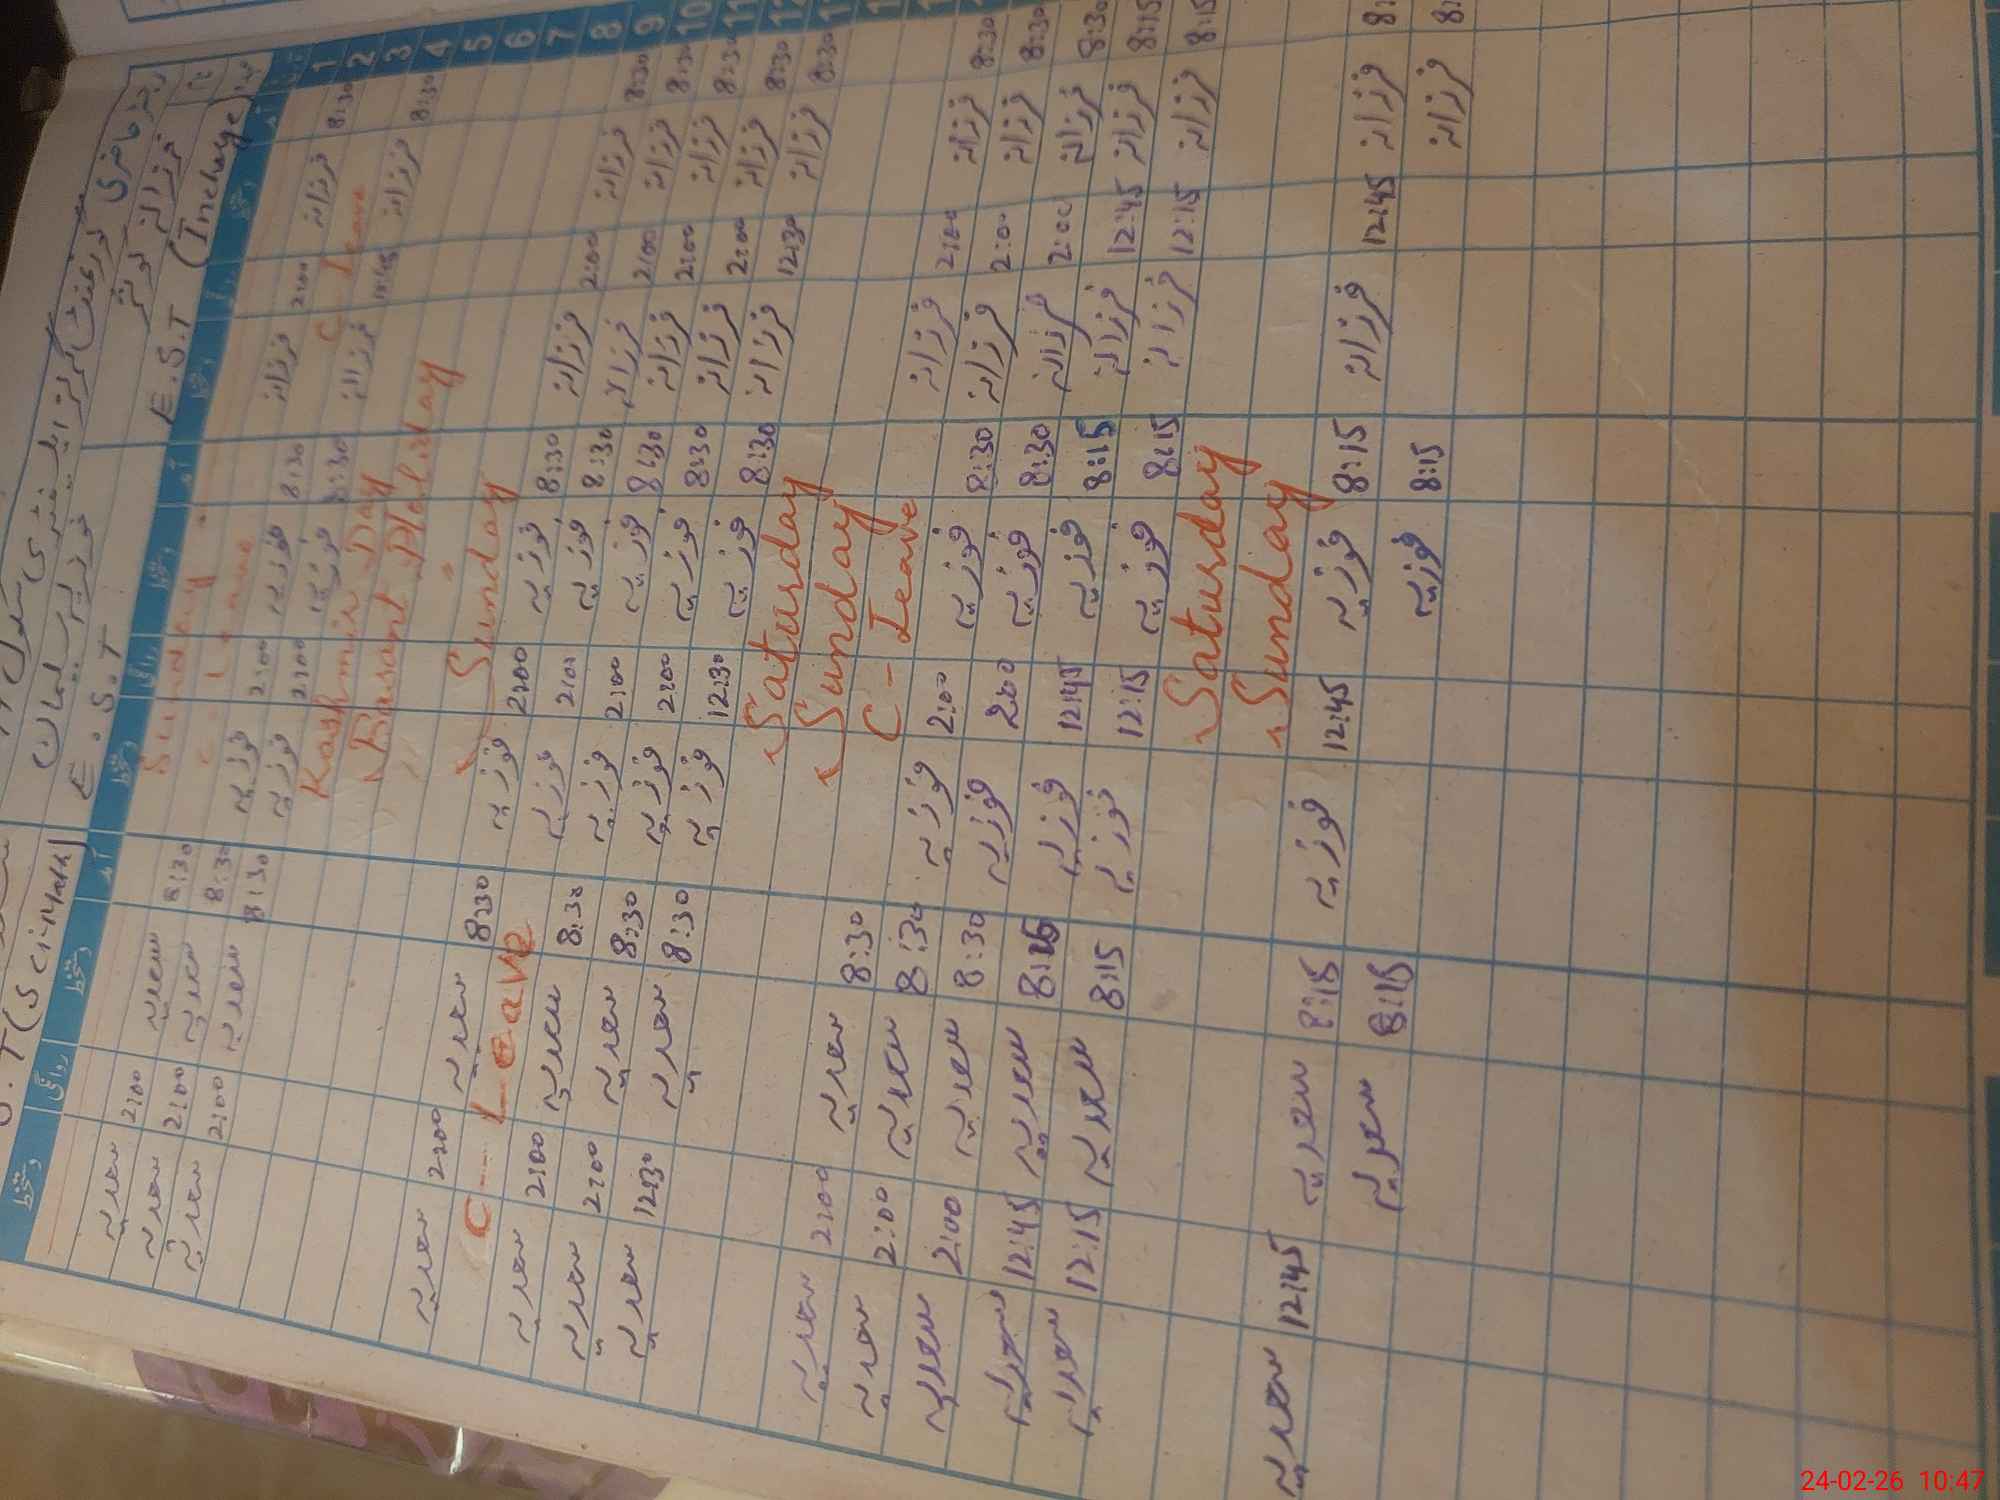 رجسٹر حاضری گورنمنٹ گرلز ایلیمنٹری سکول
فرزانہ کوثر فوزیہ سلیمان
(Incharge) E.S.T E.S.T
آمد دستخط روانگی دستخط آمد دستخط روانگی دستخط آمد دستخط روانگی دستخط
1 Sunday
2 8:30 فرزانہ 2:00 فرزانہ C-Leave 8:30 سعدیہ 2:00 سعدیہ
3 C-Leave 8:30 فوزیہ 2:00 فوزیہ 8:30 سعدیہ 2:00 سعدیہ
4 8:30 فرزانہ 12:45 فرزانہ 8:30 فوزیہ 2:00 فوزیہ 8:30 سعدیہ 2:00 سعدیہ
5 Kashmir Day
6 Basant Holiday
7 " "
8 Sunday
9 8:30 فرزانہ 2:00 فرزانہ 8:30 فوزیہ 2:00 فوزیہ 8:30 سعدیہ 2:00 سعدیہ
10 8:30 فرزانہ 2:00 فرزانہ 8:30 فوزیہ 2:00 فوزیہ C-Leave
11 8:30 فرزانہ 2:00 فرزانہ 8:30 فوزیہ 2:00 فوزیہ 8:30 سعدیہ 2:00 سعدیہ
12 8:30 فرزانہ 2:00 فرزانہ 8:30 فوزیہ 2:00 فوزیہ 8:30 سعدیہ 2:00 سعدیہ
8:30 فرزانہ 12:30 فرزانہ 8:30 فوزیہ 12:30 فوزیہ 8:30 سعدیہ 12:30 سعدیہ
Saturday
Sunday
8:30 فرزانہ 2:00 فرزانہ C-Leave 8:30 سعدیہ 2:00 سعدیہ
8:30 فرزانہ 2:00 فرزانہ 8:30 فوزیہ 2:00 فوزیہ 8:30 سعدیہ 2:00 سعدیہ
8:30 فرزانہ 2:00 فرزانہ 8:30 فوزیہ 2:00 فوزیہ 8:30 سعدیہ 2:00 سعدیہ
8:15 فرزانہ 12:45 فرزانہ 8:15 فوزیہ 12:45 فوزیہ 8:15 سعدیہ 12:45 سعدیہ
8:15 فرزانہ 12:15 فرزانہ 8:15 فوزیہ 12:15 فوزیہ 8:15 سعدیہ 12:15 سعدیہ
Saturday
Sunday
فرزانہ 12:45 فرزانہ 8:15 فوزیہ 12:45 فوزیہ 8:15 سعدیہ 12:45 سعدیہ
فرزانہ 8:15 فوزیہ 8:15 سعدیہ
24-02-26 10:47